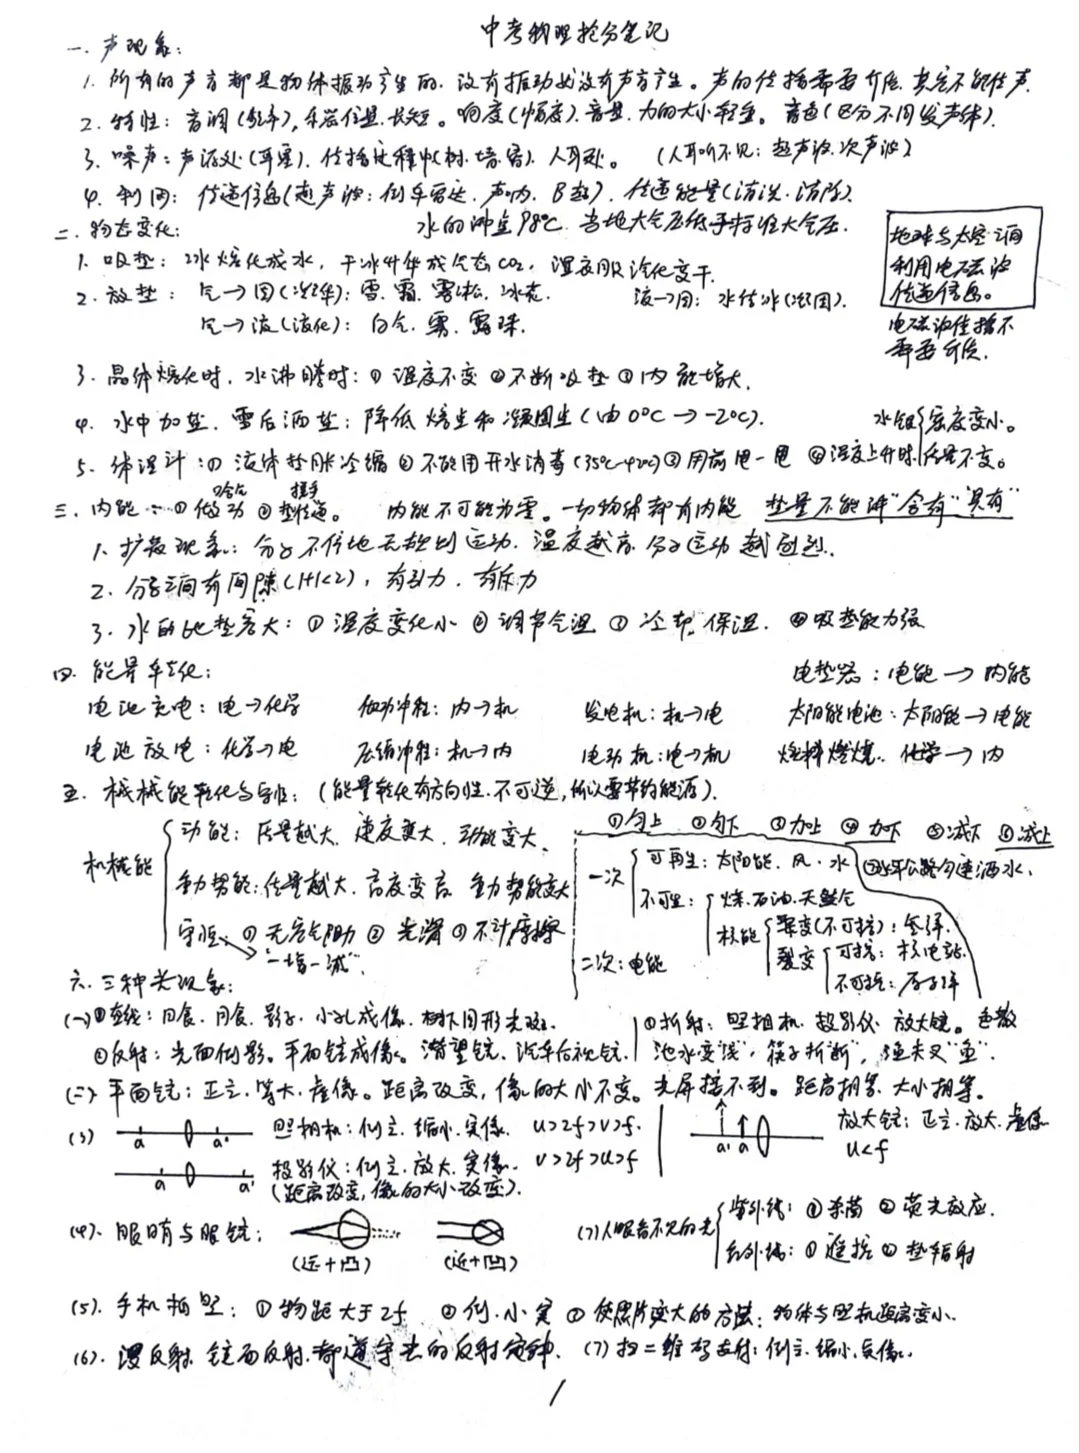 中考物理抢分笔记
一. 声现象:
1. 所有的声音都是物体振动产生的. 没有振动就没有声音产生。声的传播需要介质. 真空不能传声.
2. 特性: 音调(频率), 乐器位置. 长短。响度(幅度). 音量. 力的大小轻重。音色(区分不同发声体).
3. 噪声: 声源处(耳塞). 传播过程中(树. 墙. 窗). 人耳处。 (人耳听不见: 超声波. 次声波)
4. 利用: 传递信息(超声波: 倒车雷达. 声呐. B超). 传递能量(清洗. 消除).
二. 物态变化: 水的沸点98℃. 当地大气压低于标准大气压.
1. 吸热: 冰熔化成水, 干冰升华成气态CO₂, 湿衣服汽化变干.
2. 放热: 气→固(凝华): 雪. 霜. 雾凇. 冰花. 液→固: 水结冰(凝固).
气→液(液化): 白气. 雾. 露珠.
地球与太空之间
利用电磁波
传递信息。
电磁波传播不
需要介质.
3. 晶体熔化时. 水沸腾时: ① 温度不变 ② 不断吸热 ③ 内能增大.
4. 水中加盐. 雪后洒盐: 降低熔点和凝固点(由0℃→-2℃).
5. 体温计: ① 液体热胀冷缩 ② 不能用开水消毒(35℃-42℃) ③ 用前甩一甩 ④ 温度上升时 水银{密度变小。 质量不变。
三. 内能: ① 做功 ② 热传递。 内能不可能为零。一切物体都有内能 热量不能讲“含有”“具有”
1. 扩散现象: 分子不停地无规则运动. 温度越高. 分子运动越剧烈.
2. 分子之间有间隙(1+1<2), 有引力. 有斥力
3. 水的比热容大: ① 温度变化小 ② 调节气温 ③ 冷却. 保温. ④ 吸热能力强
四. 能量转化: 电热器: 电能→内能
电池充电: 电→化学 做功冲程: 内→机 发电机: 机→电 太阳能电池: 太阳能→电能
电池放电: 化学→电 压缩冲程: 机→内 电动机: 电→机 燃料燃烧. 化学→内
五. 机械能转化与守恒: (能量转化有方向性. 不可逆, 所以要节约能源).
①匀上 ②匀下 ③加上 ④加下 ⑤减下 ⑥减上
⑦水平公路匀速洒水.
机械能
动能: 质量越大. 速度变大. 动能变大.
重力势能: 质量越大. 高度变高 重力势能变大
守恒: ① 无空气阻力 ② 光滑 ③ 不计摩擦
“一增一减”.
一次
可再生: 太阳能. 风. 水
不可再生: 煤. 石油. 天然气
核能
聚变(不可控): 氢弹.
裂变
可控: 核电站.
不可控: 原子弹
二次: 电能
六. 三种光现象:
(一) ① 直线: 日食. 月食. 影子. 小孔成像. 树下圆形光斑. ③折射: 照相机. 投影仪. 放大镜。色散
②反射: 水面倒影. 平面镜成像。潜望镜. 汽车后视镜. 池水变“浅”, 筷子“折断”, 渔夫叉“鱼”.
(二) 平面镜: 正立. 等大. 虚像。距离改变, 像的大小不变。光屏接不到。距离相等. 大小相等。
(3) a a' 照相机: 倒立. 缩小. 实像. u>2f>v>f.
a a' 投影仪: 倒立. 放大. 实像. v>2f>u>f
(距离改变, 像的大小改变).
a' a 放大镜: 正立. 放大. 虚像
u<f
(4). 眼睛与眼镜: (远+凸) (近+凹)
(7)人眼看不见的光
紫外线: ① 杀菌 ② 荧光效应.
红外线: ① 遥控 ② 热辐射
(5). 手机拍照: ① 物距大于2f ② 倒. 小. 实 ③ 使照片变大的方法: 物体与照机距离变小.
(6). 漫反射. 镜面反射. 都遵守光的反射定律. (7) 扫二维码支付: 倒立. 缩小. 实像.
1